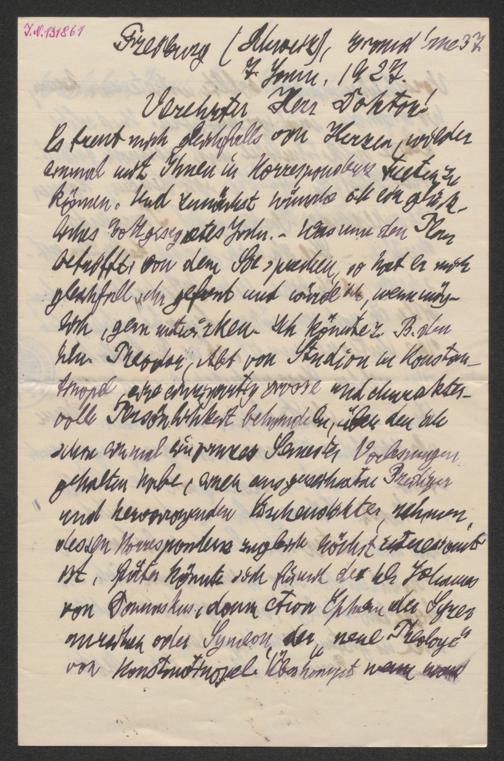 J.N. 191861
Freiburg (Schweiz), Grand'rue 37
7. Jann. 1927.
Verehrter Herr Doktor!
Es freut mich gleichfalls von Herzen, wieder
einmal mit Ihnen in Korrespondenz treten zu
können. Und zunächst wünsche ich ein glück-
liches Jahr. - Was nun den Plan
betrifft, von dem Sie sprechen, so hat er mich
gleichfalls sehr gefreut und würde ich, wenn mög-
lich, gern mitwirken. Ich könnte z. B. den
hl. Theodor, Abt von Studion in Konstan-
tinopel, eine einzigartig grosse und charakter-
volle Persönlichkeit behandeln, über den ich
schon einmal ein ganzes Semester Vorlesungen
gehalten habe, einen ausgezeichneten Prediger
und hervorragenden Kirchendichter, nehmen,
dessen Korrespondenz zugleich höchst interessant
ist. Später könnte sich der hl. Johannes
von Damaskus, dann etwa Ephräm der Syrer
anreihen oder Symeon, der "neue Theologe"
von Konstantinopel. Überhaupt wenn